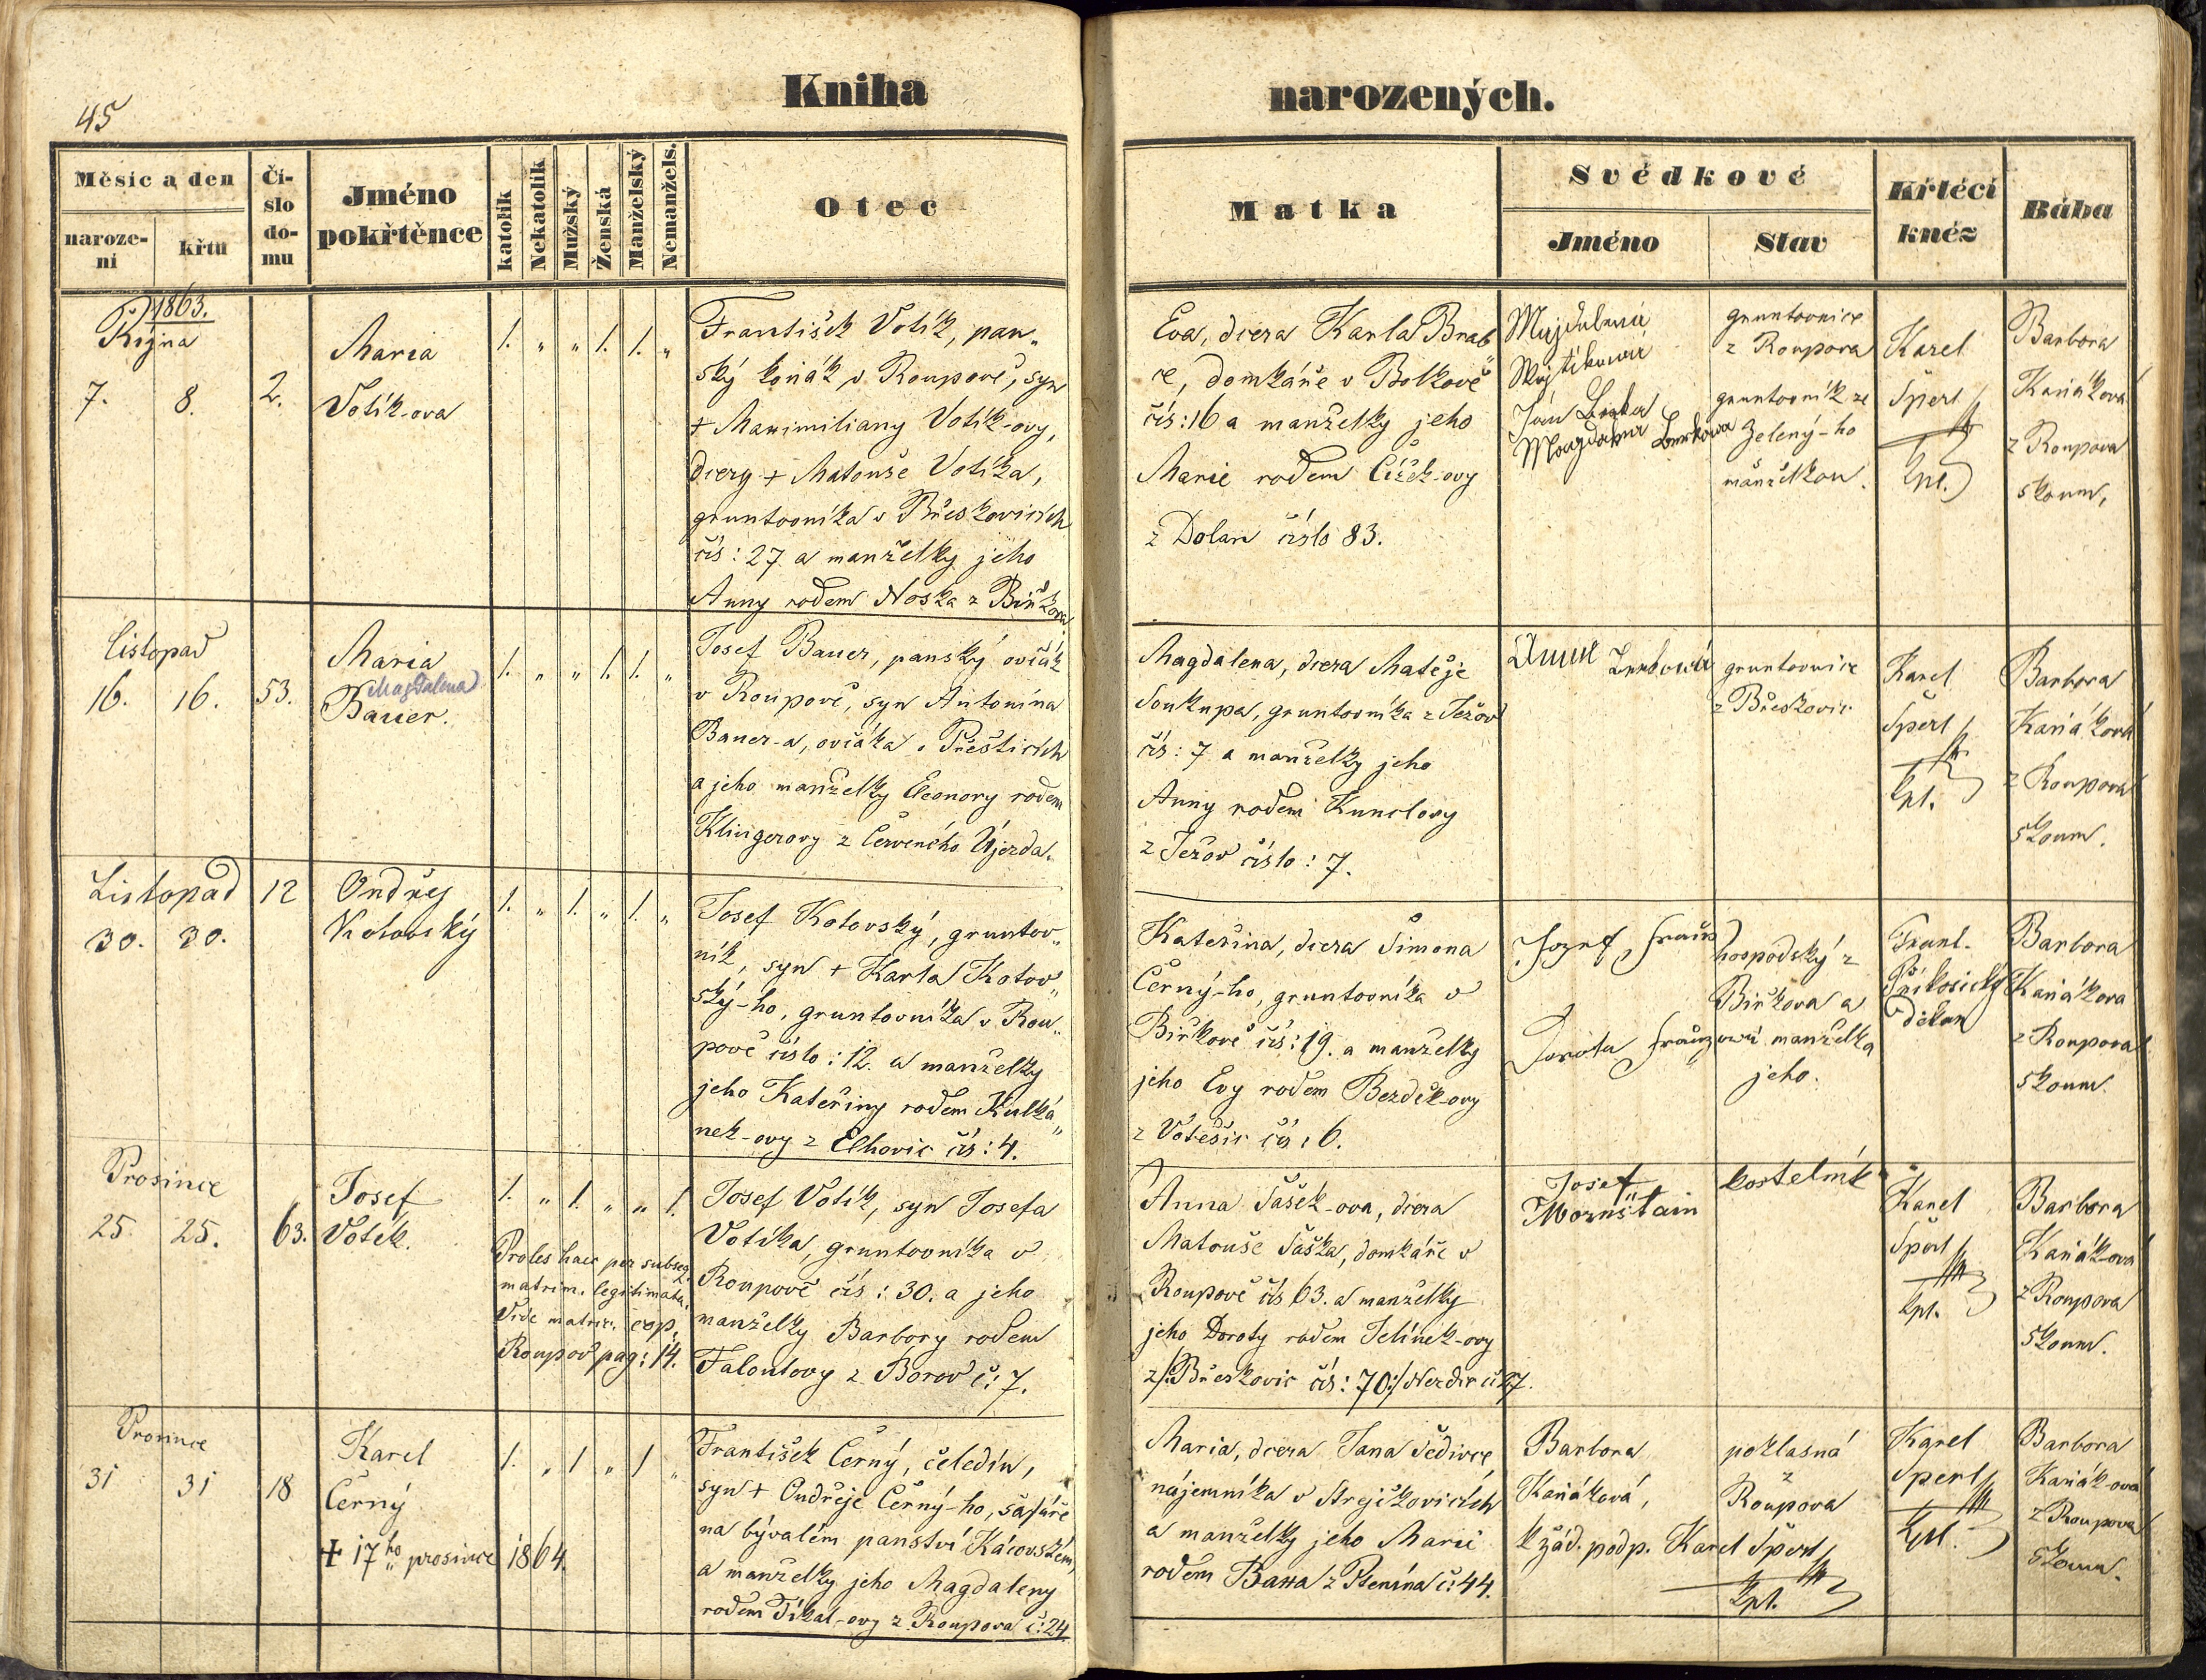 45
Kniha
narozených.
Měsíc a den
naroze-
ni
křtu
Čí-
slo
do-
mu
Jméno
pokřtěnce
katolík
Nekatolík
Mužský
Ženská
Manželský
Nemanžels.
Otec
Matka
Svědkové
Jméno
Stav
Křtěcí
kněz
Bába
1863.
Října
7. 8. 2.
Maria
Votík-ova
1. „ „ 1. 1. „
František Votík, pan„
ský koňák v Roupově, syn
+ Maximiliany Votík-ovy,
dcery + Matouše Votíka,
gruntovníka v Břeskovicích
čís: 27 a manželky jeho
Anny rodem Noska z Biřkova
Eva, dcera Karla Brab
ce, domkáře v Bolkově
čís: 16 a manželky jeho
Marie rodem Čížek-ovy
z Dolan číslo 83.
Majdalená
Wojtíková
Ján
Magdalena
gruntovnice
z Roupova
gruntovník ze
Zelený-ho
manželkou.
Karel
Šperl
kpl.
Barbora
Kaňáková
z Roupova
zkoum,
Listopad
16. 16. 53.
Maria
Magdalena
Bauer.
1. „ „ 1. 1. „
Josef Bauer, panský ovčák
v Roupově, syn Antonína
Bauer-a, ovčáka v Přešticích
a jeho manželky Eleonory rodem
Klingerovy z Červeného Újezda.
Magdalena, dcera Matěje
Soukupa, gruntovníka z Ježov
čís: 7 a manželky jeho
Anny rodem Kunclovy
z Ježov číslo: 7.
Anna
gruntovnice
z Břeskovic
Karel
Šperl
kpl.
Barbora
Kaňáková
z Roupova
zkoum.
Listopad
30. 30.
12
Ondřej
Kotovský
1. „ 1. „ 1. „
Josef Kotovský, gruntov„
ník, syn + Karla Kotov„
ský-ho, gruntovníka v Rou„
pově číslo: 12. a manželky
jeho Kateřiny rodem Kulká„
nek-ovy z Elhovic čís: 4.
Kateřina, dcera Šimona
Černý-ho, gruntovníka v
Biřkově čís: 19. a manželky
jeho Evy rodem Bezděk-ovy
z Votěšic čís: 6.
Jozef
Dorota
hospodský z
Biřkova a
manželka
jeho.
Frant.
Příkosický
děkan
Barbora
Kaňákova
z Roupova
zkoum.
Prosince
25. 25. 63.
Josef
Votík.
1. „ 1. „ „ 1.
Proles haec per subseq.
matrim. legitimata.
Vide matric. cop.
Roupov pag: 14.
Josef Votík, syn Josefa
Votíka, gruntovníka v
Roupově čís: 30. a jeho
manželky Barbory rodem
Faloutovy z Borov č: 7.
Anna Šašek-ova, dcera
Matouše Šaška, domkáře v
Roupově čís 63. a manželky
jeho Doroty rodem Jelínek-ovy
z /:Břeskovic čís: 70:/ Nezdic č 27.
Josef
Mornštain
kostelník
Karel
Šperl
kpl.
Barbora
Kaňák-ová
z Roupova
zkoum.
Prosince
31 31 18
Karel
Černý
+ 17ho prosince 1864.
1. „ 1 „ 1 „
František Černý, čeledín,
syn + Ondřeje Černý-ho, šafáře
na bývalém panství Kácovském,
a manželky jeho Magdaleny
rodem Tikal-ovy z Roupova č: 24
Maria, dcera Jana Šedivce
nájemníka v Strejčkovicích
a manželky jeho Marie
rodem Bassa z Ptenína č: 44.
Barbora
Kaňáková,
k žád. podp. Karel Šperl
kpl.
poklasná
z
Roupova
Karel
Šperl
kpl.
Barbora
Kaňák-ová
z Roupova
zkoum.